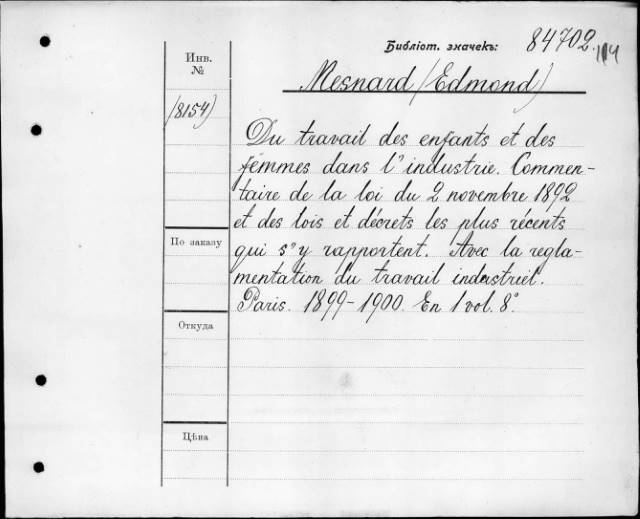 Библіот. значекъ: 84702
Инв.
№
Mesnard (Edmond)
(8154)
Du travail des enfants et des
femmes dans l'industrie. Commen-
taire de la loi du 2 novembre 1892
et des lois et décrets les plus récents
qui s'y rapportent. Avec la regla-
mentation du travail industriel.
Paris. 1899-1900. En 1 vol. 8°
По заказу
Откуда
Цѣна